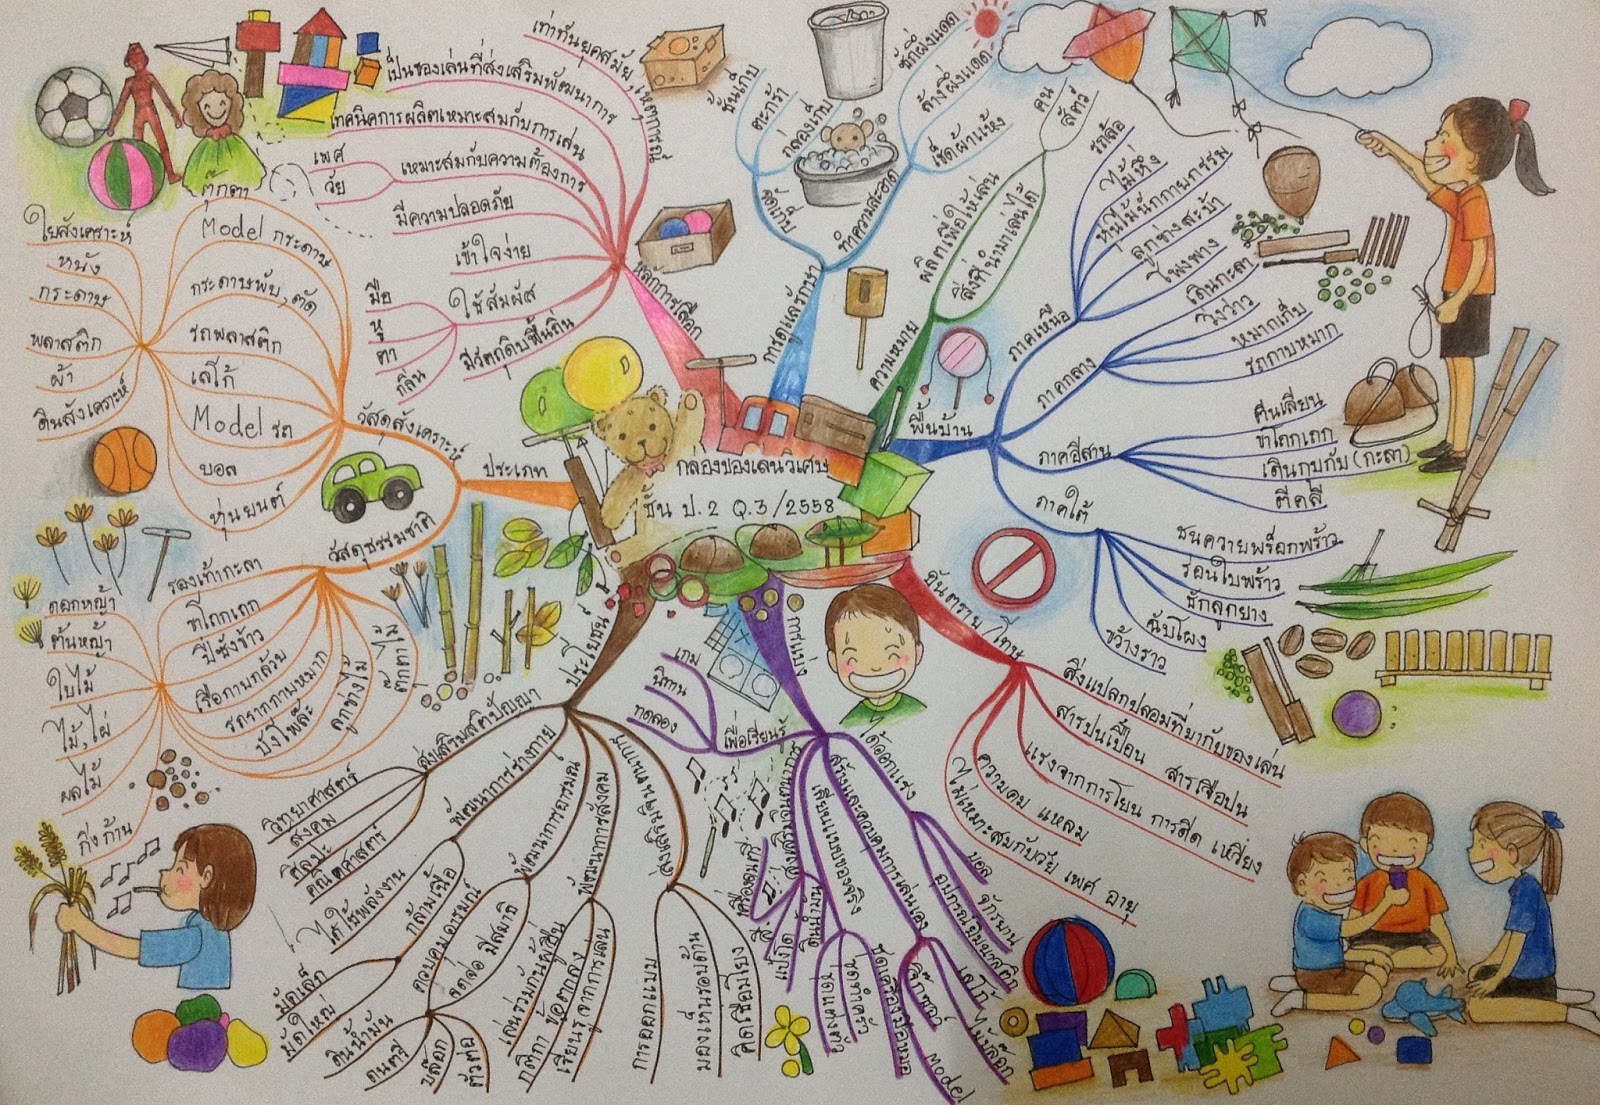 กล่องของเล่นวิเศษ
ชั้น ป.2 Q.3/2558
หลักการเลือก
เท่าทันยุคสมัย,เหตุการณ์
เป็นของเล่นที่ส่งเสริมพัฒนาการ
เทคนิคการผลิตเหมาะสมกับการเล่น
เหมาะสมกับความต้องการ
เพศ
วัย
มีความปลอดภัย
เข้าใจง่าย
ใช้สัมผัส
มือ
หู
ตา
กลิ่น
มีวัตถุดิบพื้นถิ่น
การดูแลรักษา
จัดเก็บ
ชั้นเก็บ
ตะกร้า
กล่องเก็บ
ทำความสะอาด
ซักผึ่งแดด
ล้างผึ่งแดด
เช็ดผ้าแห้ง
ความหมาย
ผลิตเพื่อให้เล่น
สิ่งที่นำมาเล่นได้
คน
สัตว์
พื้นบ้าน
ภาคเหนือ
รถล้อ
ไม้หึ่ง
หุ่นไม้นักกายกรรม
ลูกข่างสะบ้า
โพงพาง
ภาคกลาง
เดินกะลา
ว่าว
หมากเก็บ
รถกาบหมาก
ภาคอีสาน
ดีนเลียน
ขาโถกเถก
เดินกุบกับ(กะลา)
ตีคลี
ภาคใต้
ชนควายพร็อกพร้าว
ร่อนใบพร้าว
ชักลูกยาง
ฉับโผง
ขว้างราว
อันตราย/โทษ
สิ่งแปลกปลอมที่มากับของเล่น
สารปนเปื้อน สารเจือปน
แรงจากการโยน การดีด เหวี่ยง
ความคม แหลม
ไม่เหมาะสมกับวัย เพศ อายุ
การแบ่ง
เพื่อเรียนรู้
เกม
นิทาน
ทดลอง
ส่งเสริมจินตนาการ
เครื่องดนตรี
สี
แป้งโด
ดินน้ำมัน
เลียนแบบของจริง
ชุดแต่งตัว
ชุดทำครัว
ชุดเครื่องมือหมอ
สร้างและควบคุมการเล่นเอง
จิ๊กซอว์
เลโก้
ไม้บล็อก
Model
ได้ออกแรง
บอล
จักรยาน
อุปกรณ์ยิมนาสติก
ประโยชน์
ส่งเสริมสติปัญญา
วิทยาศาสตร์
สังคม
ศิลปะ
คณิตศาสตร์
พัฒนาการร่างกาย
ได้ใช้พลังงาน
กล้ามเนื้อ
มัดเล็ก
มัดใหญ่
พัฒนาการอารมณ์
ควบคุมอารมณ์
จดจ่อ มีสมาธิ
ดินน้ำมัน
ดนตรี
บล็อก
ตัวต่อ
พัฒนาการสังคม
เล่นร่วมกับผู้อื่น
กติกา ข้อตกลง
เรียนรู้จากการเล่น
ส่งเสริมจินตนาการ
การออกแบบ
มองเห็นรอบด้าน
คิดเชื่อมโยง
ประเภท
วัสดุสังเคราะห์
ใยสังเคราะห์
หนัง
กระดาษ
พลาสติก
ผ้า
ดินสังเคราะห์
ตุ๊กตา
Model กระดาษ
กระดาษพับ,ตัด
รถพลาสติก
เลโก้
Model รถ
บอล
หุ่นยนต์
วัสดุธรรมชาติ
รองเท้ากะลา
ขาโถกเถก
ปี่ซังข้าว
เรือกาบกล้วย
รถลากกาบหมาก
บั้งโพล๊ะ
ลูกข่างไม้
ดอกหญ้า
ต้นหญ้า
ใบไม้
ไม้,ไผ่
ผลไม้
กิ่งก้าน